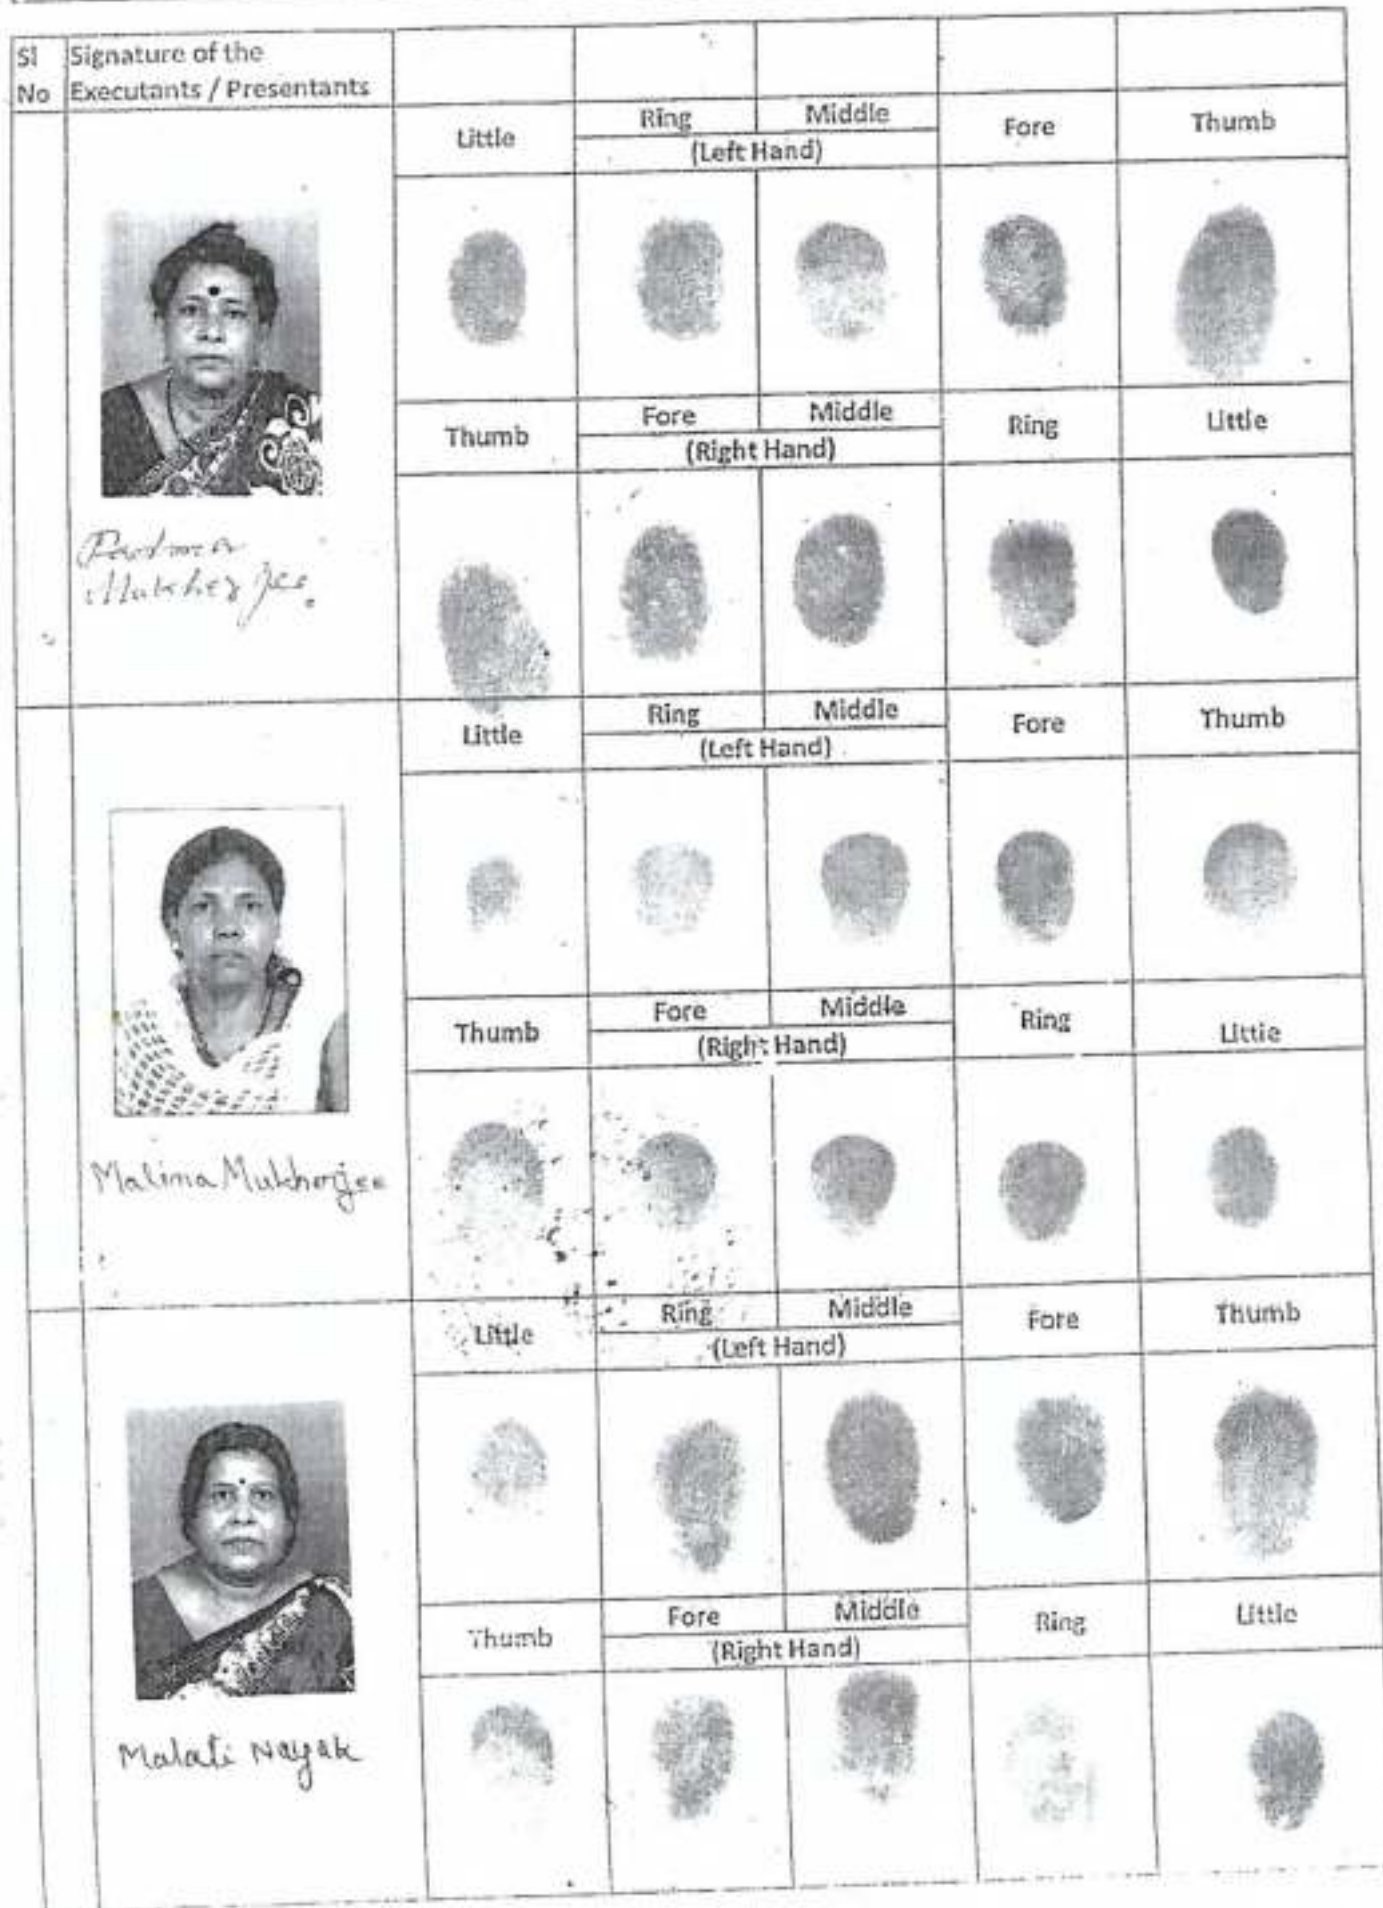 Sl Signature of the
No Executants / Presentants
Little Ring Middle Fore Thumb
(Left Hand)
Thumb Fore Middle Ring Little
(Right Hand)
Padma
Mukherjee.
Little Ring Middle Fore Thumb
(Left Hand)
Thumb Fore Middle Ring Little
(Right Hand)
Malina Mukherjee
Little Ring Middle Fore Thumb
(Left Hand)
Thumb Fore Middle Ring Little
(Right Hand)
Malati Nayak